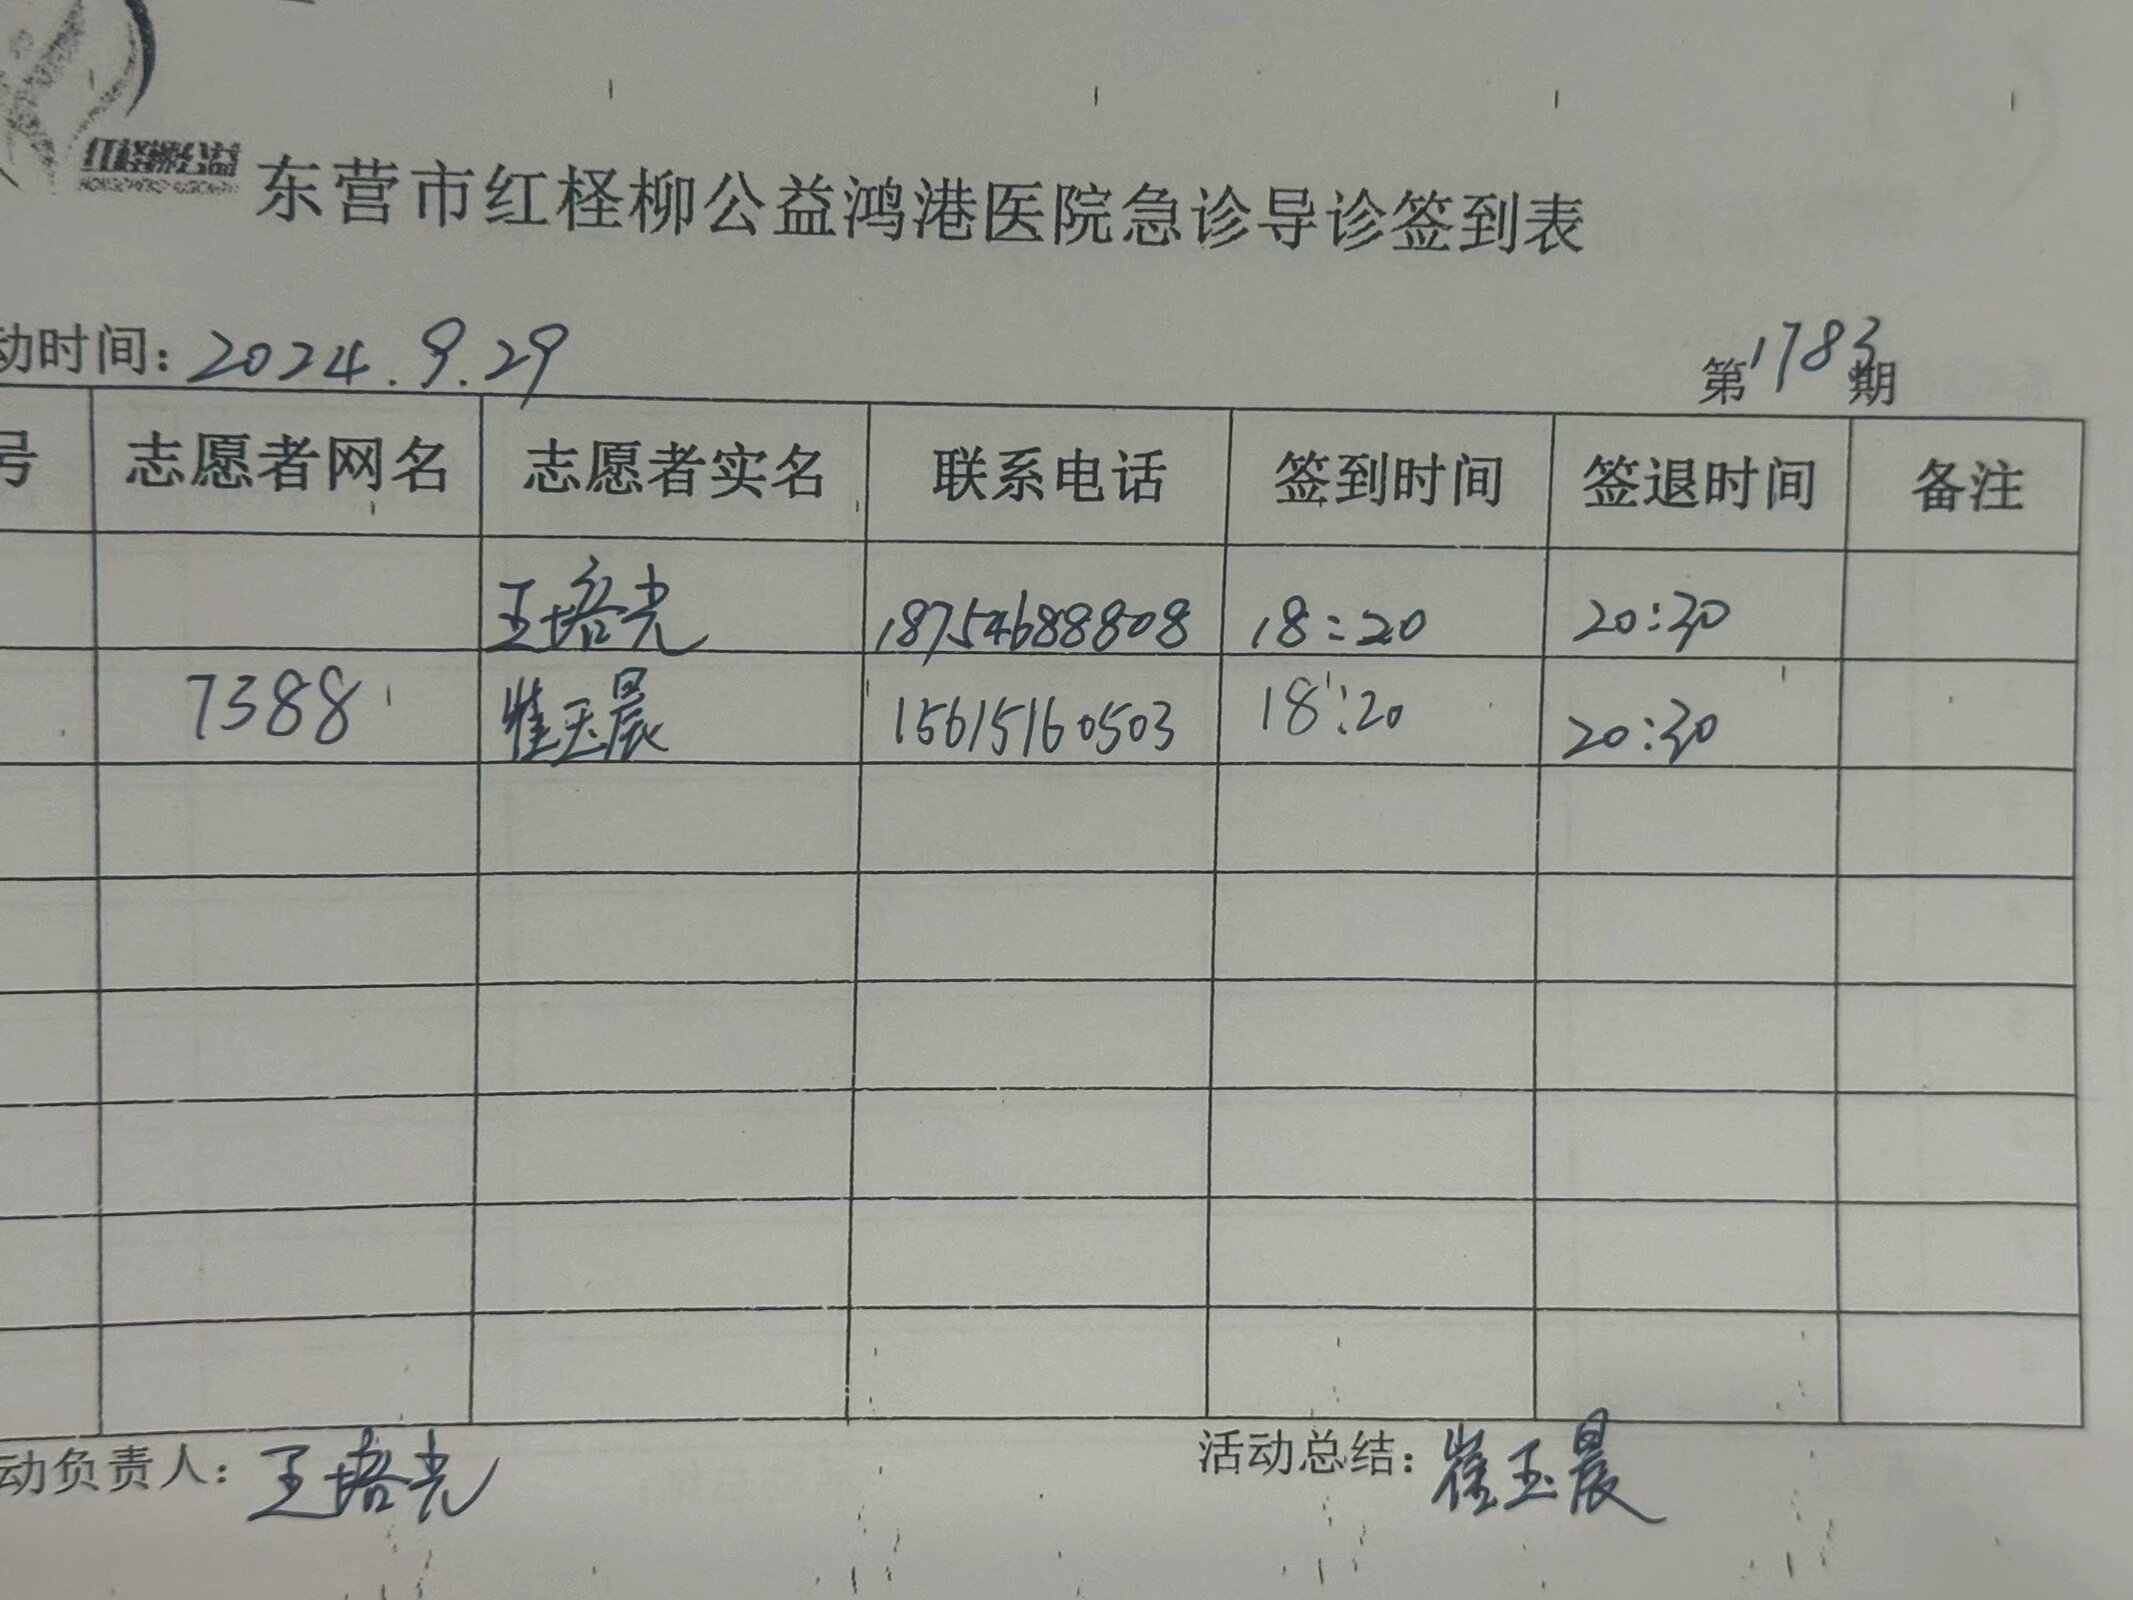 红柽柳公益
东营市红柽柳公益鸿港医院急诊导诊签到表
动时间：2024.9.29 第1783期
号 志愿者网名 志愿者实名 联系电话 签到时间 签退时间 备注
王培光 18754688808 18:20 20:30
7388 崔玉晨 15615160503 18:20 20:30
动负责人：王培光 活动总结：崔玉晨